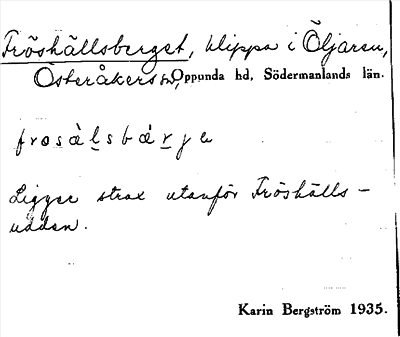 Fröshällsberget, klippa i Öljaren,
Österåkers sn, Oppunda hd, Södermanlands län.
frosàl̲sbár̲ye
Ligger strax utanför Fröshälls-
udden.
Karin Bergström 1935.